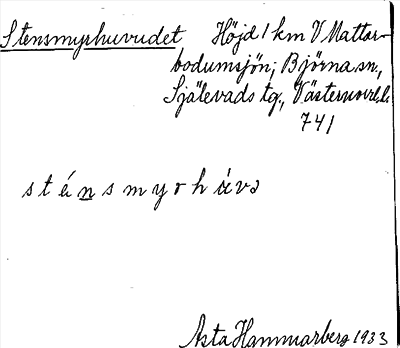 Stensmyrhuvudet Höjd 1 km V Mattar-
bodumsjön; Björna sn.,
Själevads tg., Västernorrl.l.
741
s t é n s m y r h ú v ə
Asta Hammarberg 1933